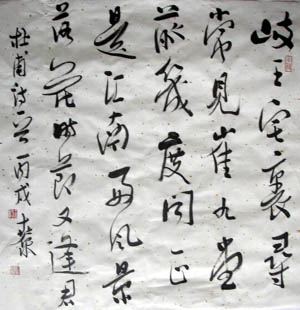 岐王宅裏尋
常見崔九堂
前幾度聞正
是江南好風景
落花時節又逢君
杜甫詩 丙戌